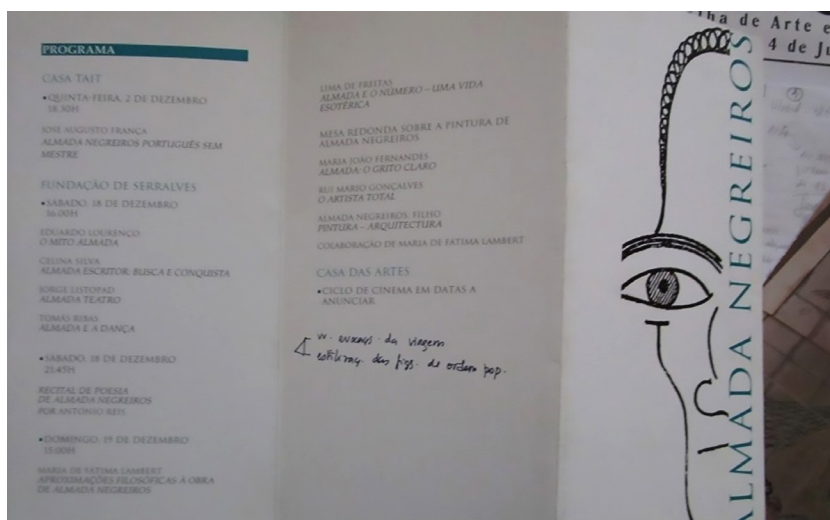 PROGRAMA
CASA TAIT
•QUINTA-FEIRA, 2 DE DEZEMBRO
18.30H
JOSÉ AUGUSTO FRANÇA
ALMADA NEGREIROS PORTUGUÊS SEM
MESTRE
FUNDAÇÃO DE SERRALVES
•SÁBADO, 18 DE DEZEMBRO
16:00H
EDUARDO LOURENÇO
O MITO ALMADA
CELINA SILVA
ALMADA ESCRITOR: BUSCA E CONQUISTA
JORGE LISTOPAD
ALMADA TEATRO
TOMÁS RIBAS
ALMADA E A DANÇA
•SÁBADO, 18 DE DEZEMBRO
21:45H
RECITAL DE POESIA
DE ALMADA NEGREIROS
POR ANTÓNIO REIS
•DOMINGO, 19 DE DEZEMBRO
15:00H
MARIA DE FÁTIMA LAMBERT
APROXIMAÇÕES FILOSÓFICAS À OBRA
DE ALMADA NEGREIROS
LIMA DE FREITAS
ALMADA E O NÚMERO – UMA VIDA
ESOTÉRICA
MESA REDONDA SOBRE A PINTURA DE
ALMADA NEGREIROS
MARIA JOÃO FERNANDES
ALMADA: O GRITO CLARO
RUI MÁRIO GONÇALVES
O ARTISTA TOTAL
ALMADA NEGREIROS, FILHO
PINTURA – ARQUITECTURA
COLABORAÇÃO DE MARIA DE FÁTIMA LAMBERT
CASA DAS ARTES
•CICLO DE CINEMA EM DATAS A
ANUNCIAR
da viagem
das figs. de ordem pop.
ALMADA NEGREIROS
de Arte e
4 de Ju